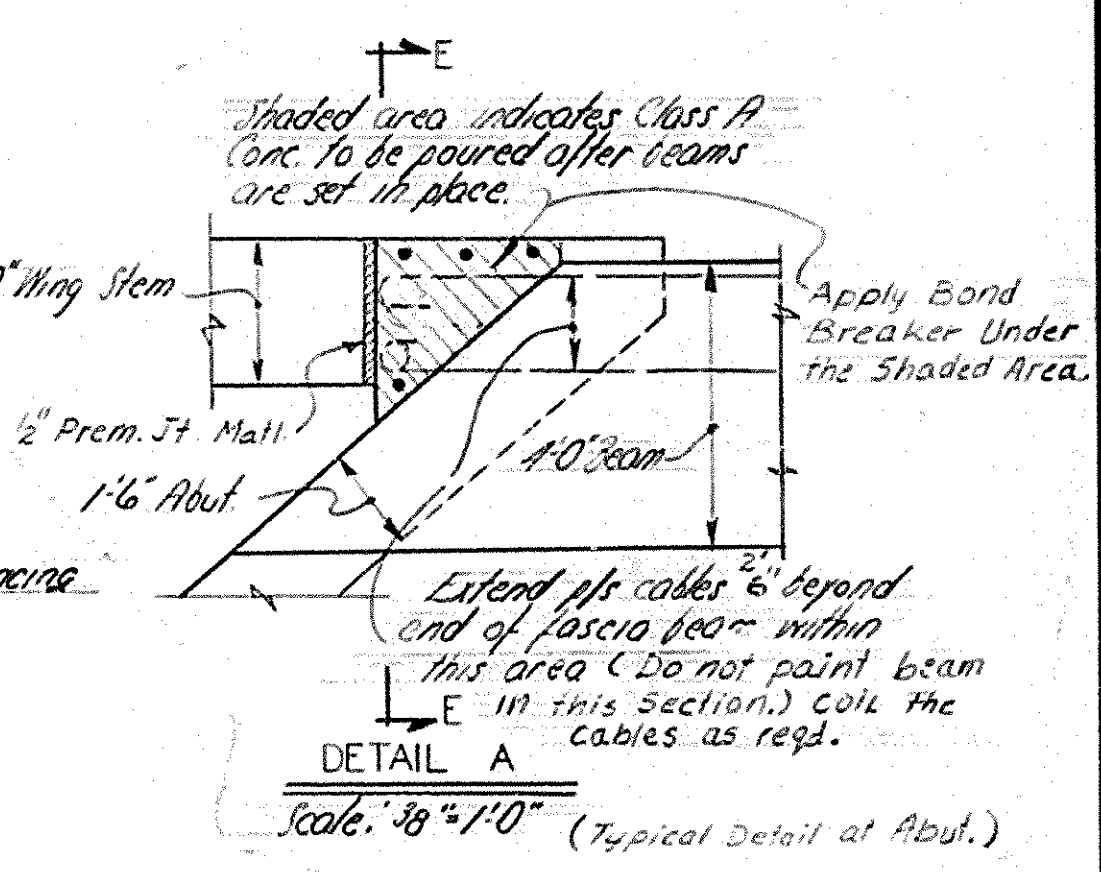 E
Shaded area indicates Class A
Conc. to be poured after beams
are set in place.
" Wing Stem
Apply Bond
Breaker Under
the Shaded Area.
½" Prem. Jt. Matl.
4'-0" Beam
1'-6" Abut.
Extend p/s cables 2'6" beyond
end of fascia beam within
this area (Do not paint beam
in this Section.) Coil the
cables as reqd.
E
DETAIL A
Scale: 3/8"=1'-0"
(Typical Detail at Abut.)